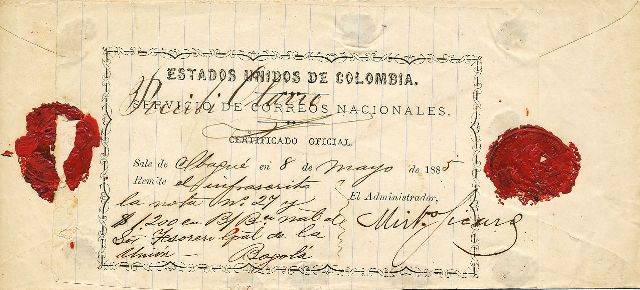 ESTADOS UNIDOS DE COLOMBIA.
Recibi
SERVICIO DE CORREOS NACIONALES.
CERTIFICADO OFICIAL.
Sale de Ibagué en 8 de mayo de 1885
Remite el infrascrito
El Administrador,
la nota Nº 27 y
$1,200 en
Tesorero Gral de la
Unión — Bogotá